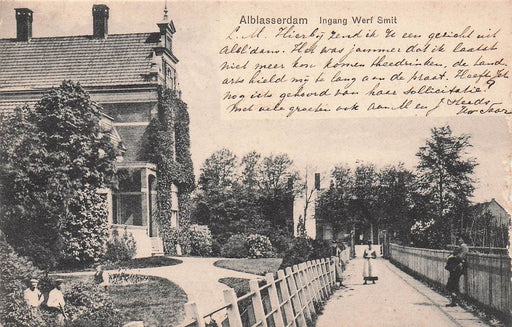 Alblasserdam Ingang Werf Smit
L. M. Hierbij zend ik Je een gezicht uit
Albl'dam. Het was jammer dat ik laatst
niet meer kon komen theedrinken, de tand
arts hield mij te lang aan de praat. Heeft Jet
nog iets gehoord van haar sollicitatie?
Met vele groeten ook aan M en J Steeds